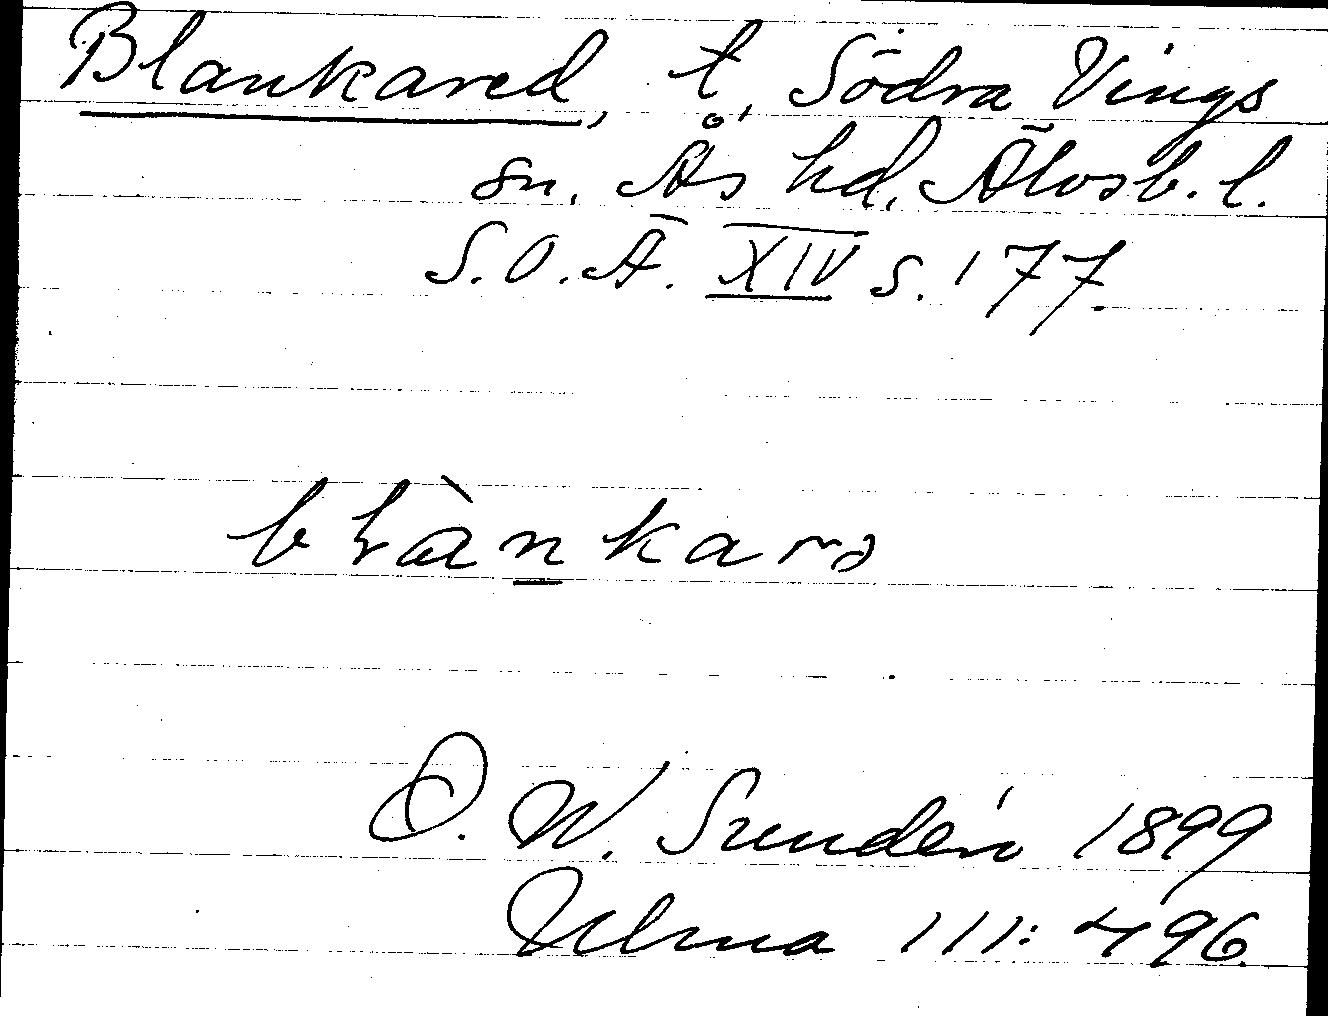 Blankared, t, Södra Vings
sn. Ås hd. Älvsb. l.
S.O.Ä. XIV s. 177.
blànkarə
O. W. Sundén 1899
Ulma 111:496.